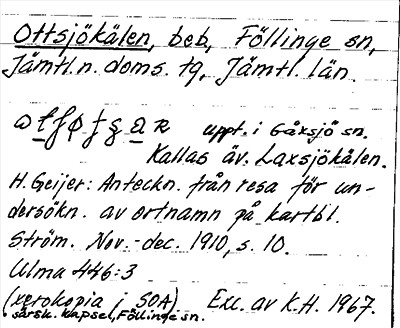 Ottsjökälen, beb, Föllinge sn,
Jämtl. n. doms. tg, Jämtl. län.
uppt. i Gåxsjö sn.
Kallas äv. Laxsjökälen.
H. Geijer: Anteckn. från resa för un-
dersökn. av ortnamn på kartbl.
Ström. Nov.-dec. 1910, s. 10.
Ulma 446:3
(xerokopia i SOA) Exc. av K.H. 1967.
särsk. kapsel, Föllinge sn.